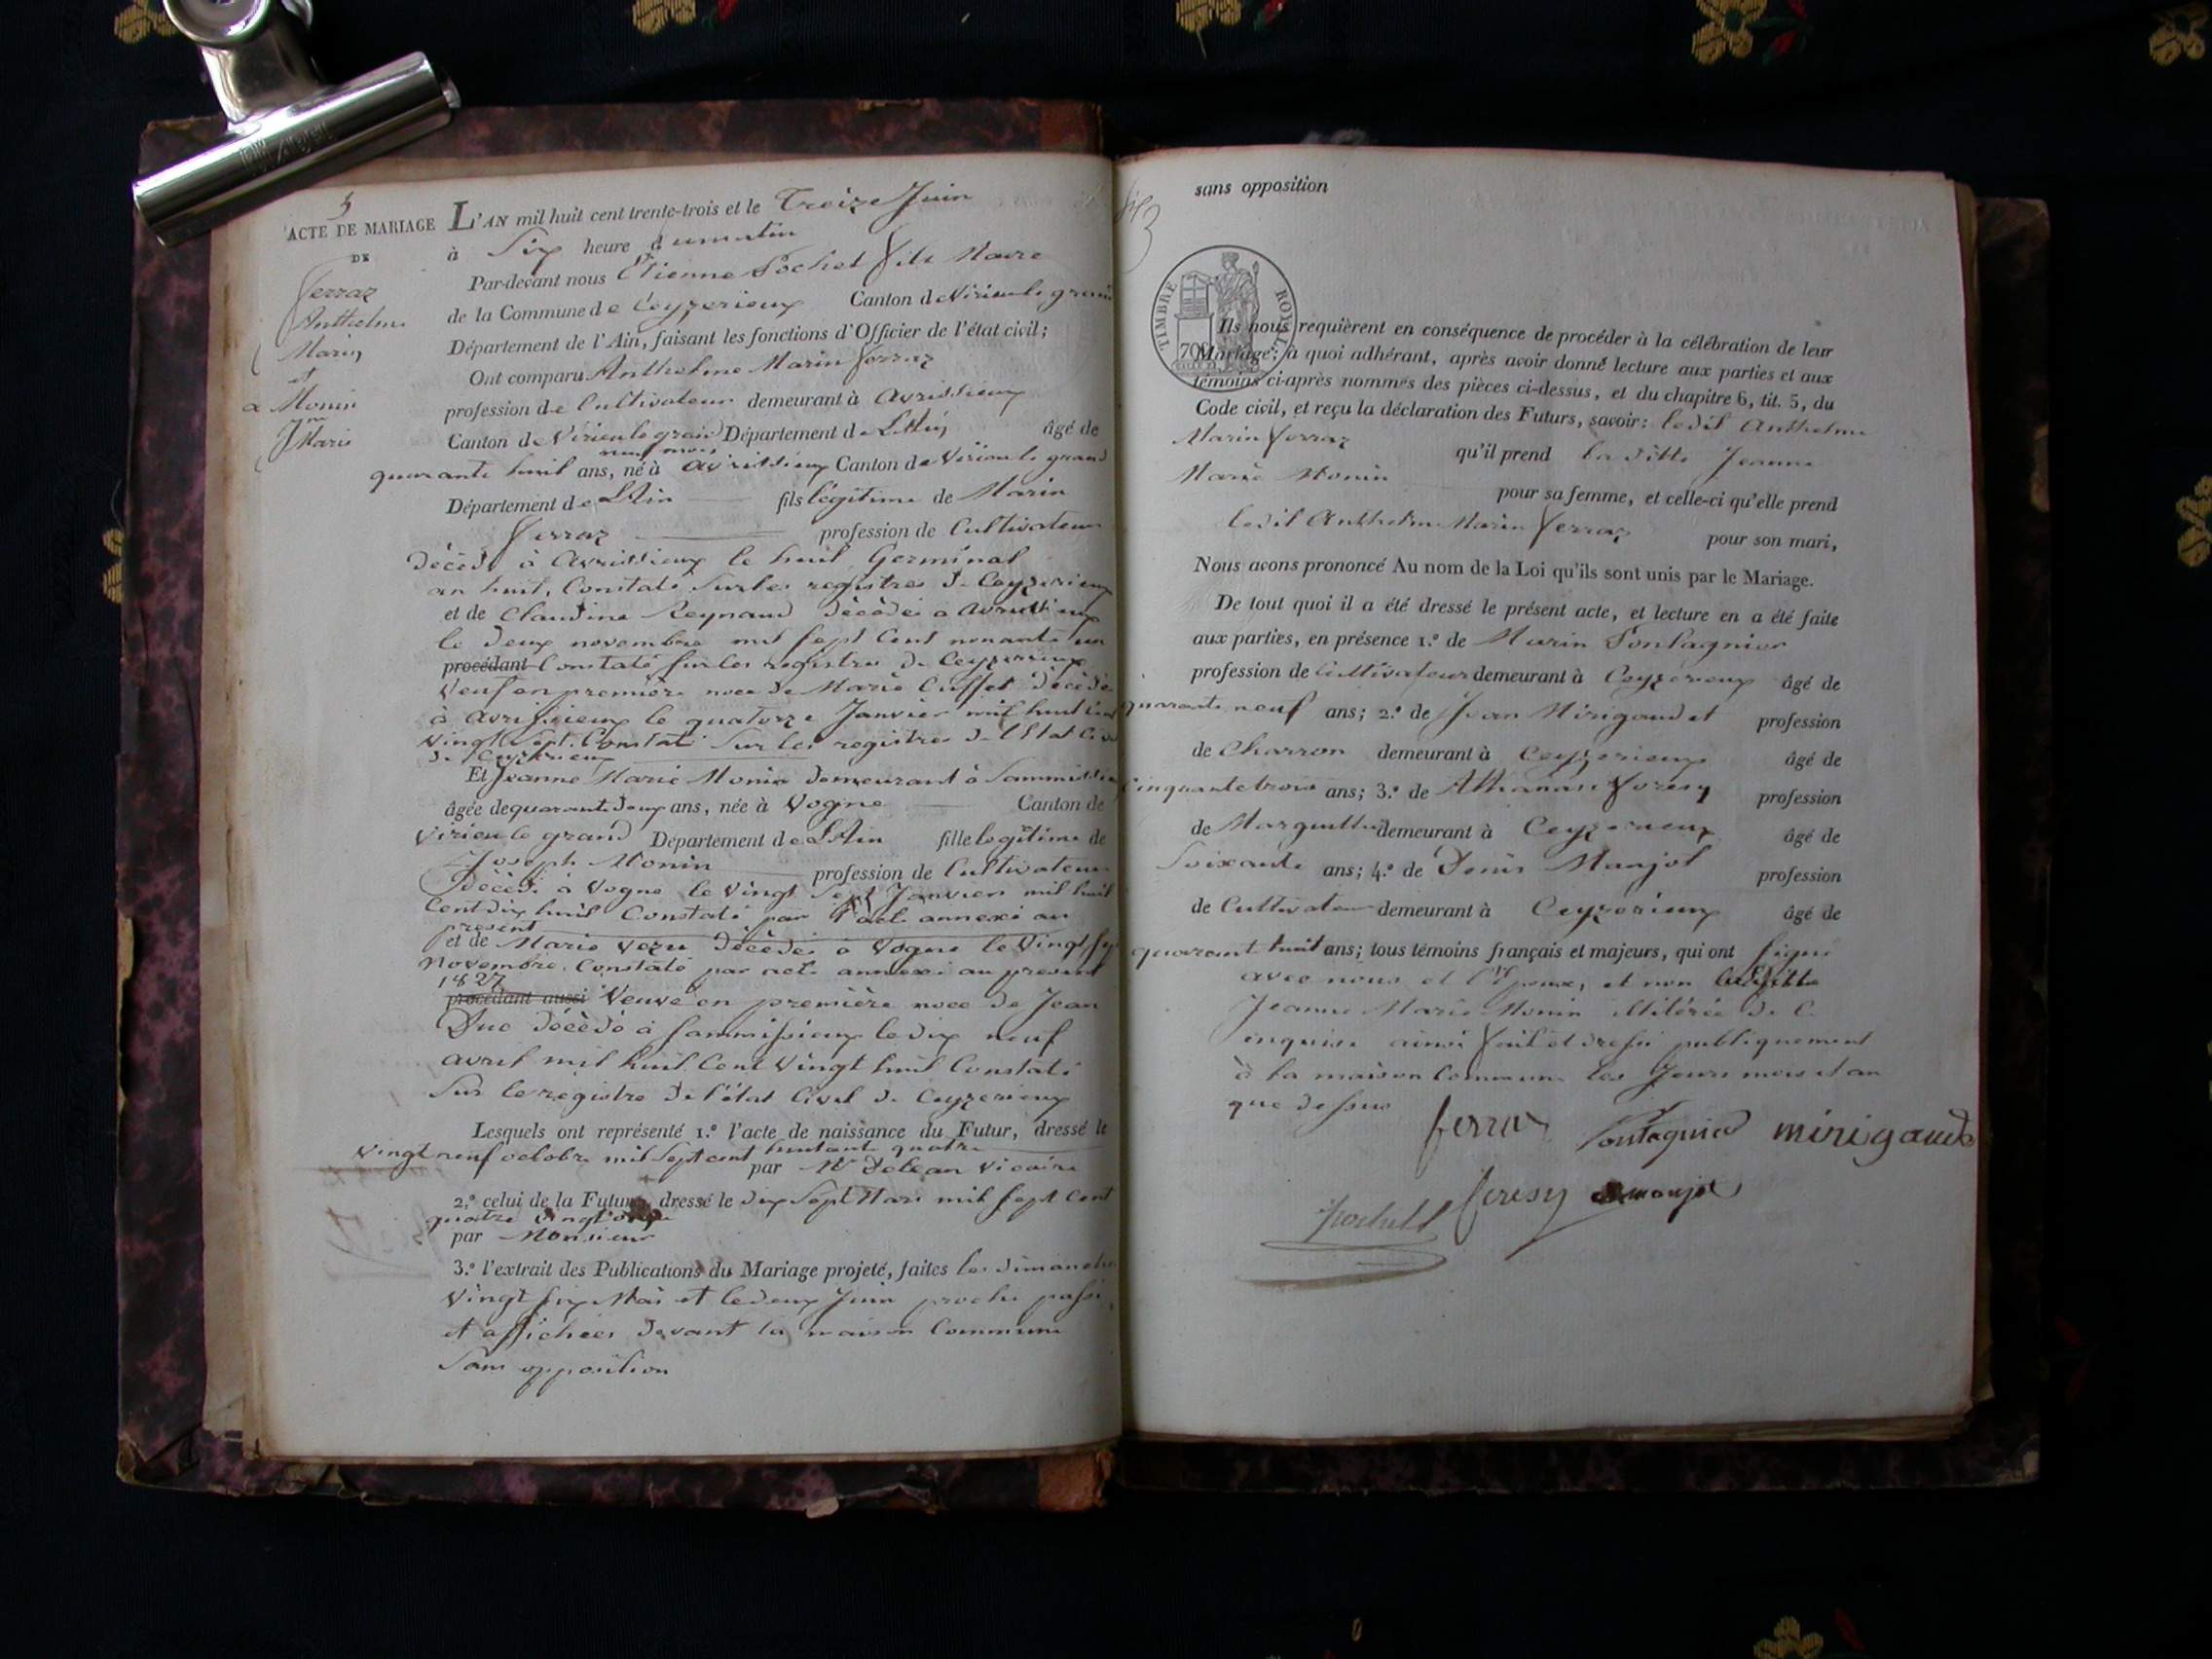 5
ACTE DE MARIAGE
DE
Ferraz
Anthelme
Marin
et
Monin
Jne
Marie
L'AN mil huit cent trente-trois et le Treize Juin
à Six heure du matin
Par-devant nous Etienne Pochet fils Maire
de la Commune de Ceyzerieux Canton de Virieu le grand
Département de l'Ain, faisant les fonctions d'Officier de l'état civil;
Ont comparu Anthelme Marin Ferraz
profession de Cultivateur demeurant à Avrissieux
Canton de Virieu le grand Département de L'Ain âgé de
neuf mois
quarante huit ans, né à Avrissieux Canton de Virieu le grand
Département de L'Ain fils légitime de Marin
Ferraz profession de Cultivateur
décédé à Avrissieux le huit Germinal
an huit, Constaté Sur les registres de Ceyzerieux
et de Claudine Reynaud décédée a Avrissieux
le deux novembre mil sept Cent nonante un
procédant Constaté sur les registres de Ceyzerieux
Veuf en première noce de Marie Cuffet décédée
à Avrissieux le quatorze Janvier mil huit Cent
Vingt Sept. Constaté Sur les registres de l'Etat Civil
de Ceyzerieux
Et Jeanne Marie Monin demeurant à Sammissieux
âgée de quarante deux ans, née à Vogne Canton de
Virieu le grand Département de L'Ain fille legitime de
Joseph Monin profession de Cultivateur
Décédé à Vogne le Vingt Sept Janvier mil huit
Cent dix huit Constaté par l'acte annexé au
present
et de Marie décédée a Vogne le Vingt Sep
Novembre, Constaté par acte annexé au present
1827
procédant aussi Veuve en première noce de Jean
Duc décédé à Sammissieux le dix neuf
avril mil huit Cent Vingt huit Constaté
Sur le registre de l'état Civil de Ceyzerieux
Lesquels ont représenté 1.º l'acte de naissance du Futur, dressé le
Vingt neuf octobre mil Sept cent huitante quatre
par Mr Vicaire
2.º celui de la Future, dressé le dix Sept Mars mil sept Cent
quatre Vingt onze
par Monsieur
3.º l'extrait des Publications du Mariage projeté, faites les dimanche
Vingt six Mai et le deux Juin proche passé,
et affichées devant la maison Commune
Sans opposition
sans opposition
TIMBRE ROYAL
70
Ils nous requièrent en conséquence de procéder à la célébration de leur
Mariage; à quoi adhérant, après avoir donné lecture aux parties et aux
témoins ci-après nommés des pièces ci-dessus, et du chapitre 6, tit. 5, du
Code civil, et reçu la déclaration des Futurs, savoir: ledit Anthelme
Marin Ferraz qu'il prend la ditte Jeanne
Marie Monin pour sa femme, et celle-ci qu'elle prend
ledit Anthelme Marin Ferraz pour son mari,
Nous avons prononcé Au nom de la Loi qu'ils sont unis par le Mariage.
De tout quoi il a été dressé le présent acte, et lecture en a été faite
aux parties, en présence 1.º de Marin Pontagnier
profession de Cultivateur demeurant à Ceyzerieux âgé de
quarante neuf ans; 2.º de Jean Mirigaudet profession
de Charron demeurant à Ceyzerieux âgé de
Cinquante trois ans; 3.º de Athanase Foresy profession
de demeurant à Ceyzerieux âgé de
Soixante ans; 4.º de Denis Manjot profession
de Cultivateur demeurant à Ceyzerieux âgé de
quarant huit ans; tous témoins français et majeurs, qui ont signé
avec nous et l'Epoux, et non laditte
Jeanne Marie Monin illitérée de C.
enquise ainsi fait et dressé publiquement
à la maison Commune les Jours mois et an
que dessus
ferraz Pontagnier mirigaude
Pochet foresy manjot